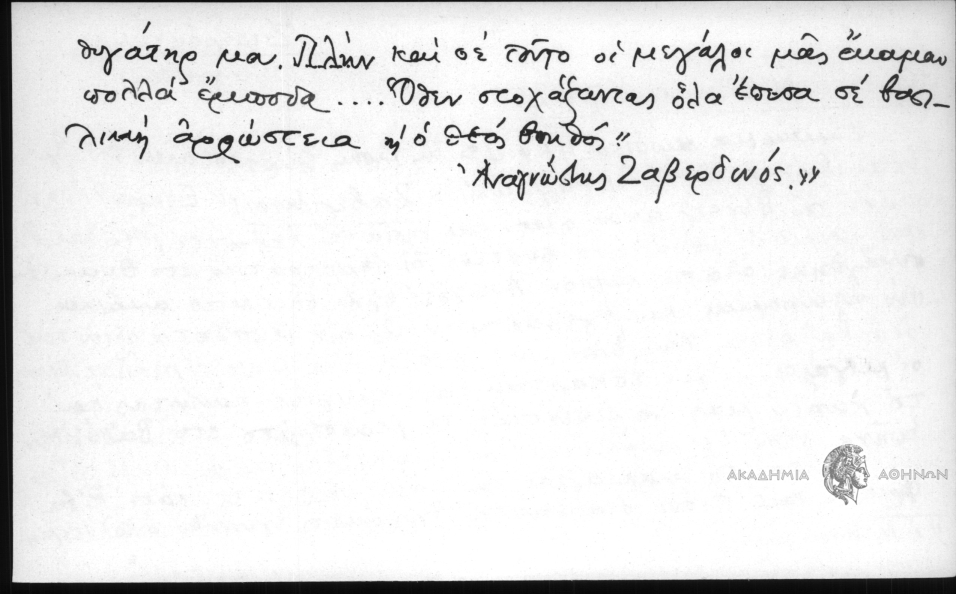 θυγάτηρ μου. Πλήν καί σέ τοῦτο οἱ μεγάλοι μᾶς ἔκαμαν
πολλά ἔμποδα .... Ὅθεν στοχάζοντας ὅλα ἔπεσα σέ βασι-
λική ἀρρώστεια κι ὁ θεός βοηθός."
Ἀναγνώστης Ζαβερδινός.»
ΑΚΑΔΗΜΙΑ ΑΘΗΝΩΝ